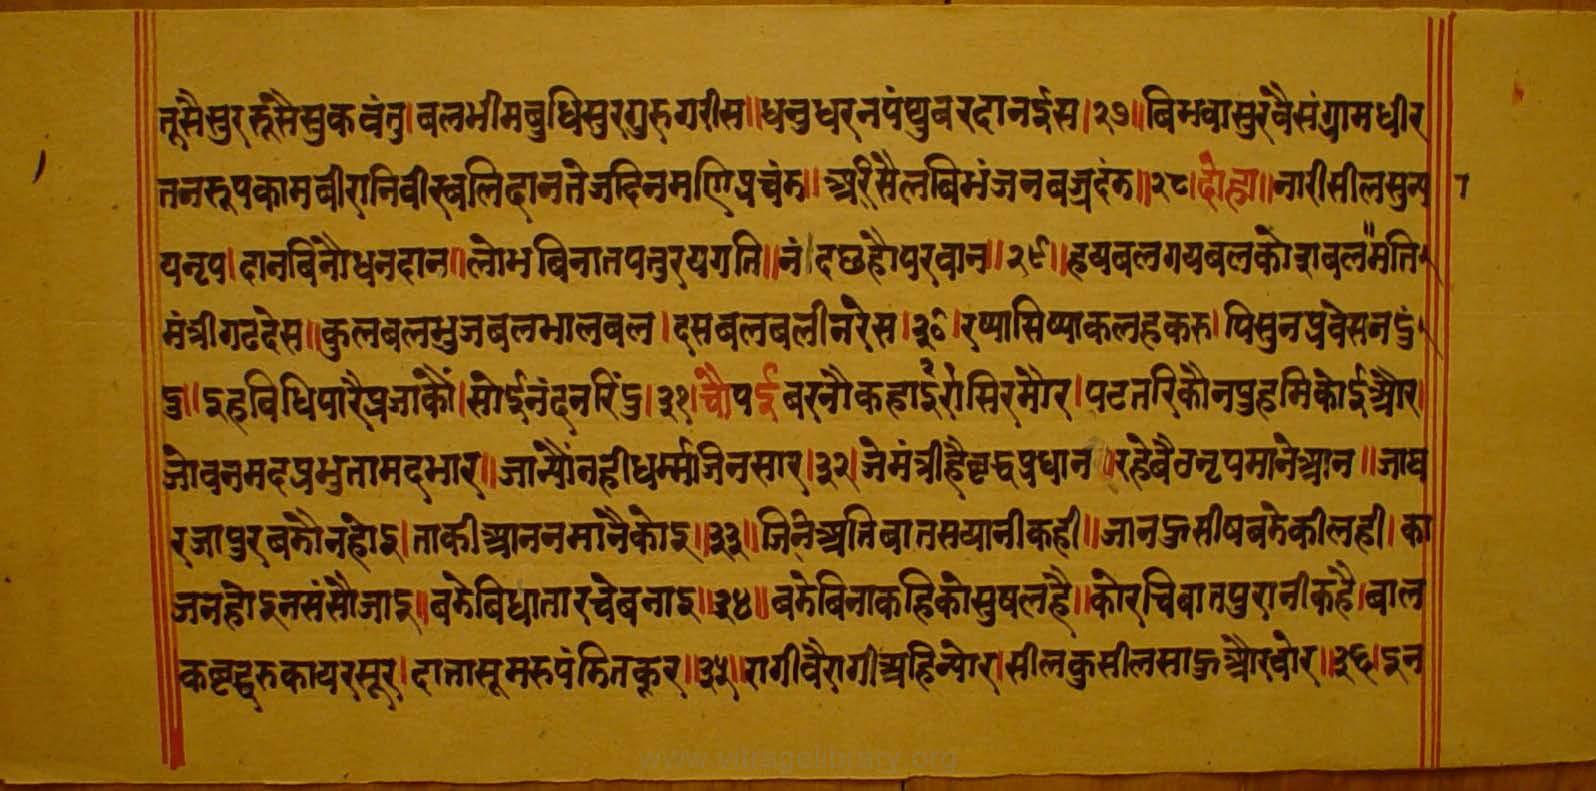 तूसैसुर रूंसैसुकवंतु। बलभीमबुधिसुरगुरुगरीस॥ धनुधरनपंथुबरदानईस।२७॥ बिभवासुरवैसंग्रामधीर
तनरूपकामबीरानिवीरु बलिदानतेजदिनमणिप्रचंत॥ अरिसैलबिभंजनबज्रदंत॥२८। दोहा॥ नारीसीलसुन्य १
यनृप। दानबिनौधनदान॥ लोभबिनातपतुरयगति॥ नंदछहौपरवान॥२९॥ हयबलगयबलकोशबलमति
मंत्रीगढदेस॥ कुलबलभुजबलभालबल। दसबलबलीनरेस।३०। रप्पासिप्पाकलहकरु। पिसुनप्रवेसनदुं
दु॥ इहविधिपारैप्रजाकौं। सोईनंदनरिंदु।३१। चौपई बरनौकहाईरौसिरमौर। पटतरिकौनपुहमिकोईऔर।
जोवनमदप्रभुतामदभार॥ जान्यौंनहीधर्म्मजिनसार।३२। जेमंत्रीहैवृद्धप्रधान रहेबैठनृपमानेआन॥ जाघ
रजापुरबतौनहोइ। ताकीआननमानैकोइ॥३३॥ जिनेअतिबातसयानीकही॥ जानऊसीषबतेकीलही। का
जनहोइनसंसौजाइ॥ बतेबिधातारचेबनाइ॥३४॥ बतेबिनाकहिकोसुषलहै॥ कोरचिबातपुरानीकहै। बाल
कवृद्धरुकायरसूर। दातासूमरुपंतितकूर॥३५॥ रागीवैरागीअहिन्योर। सीलकुसीलसाऊऔरचोर॥३६। इन
www.vitragelibrary.org